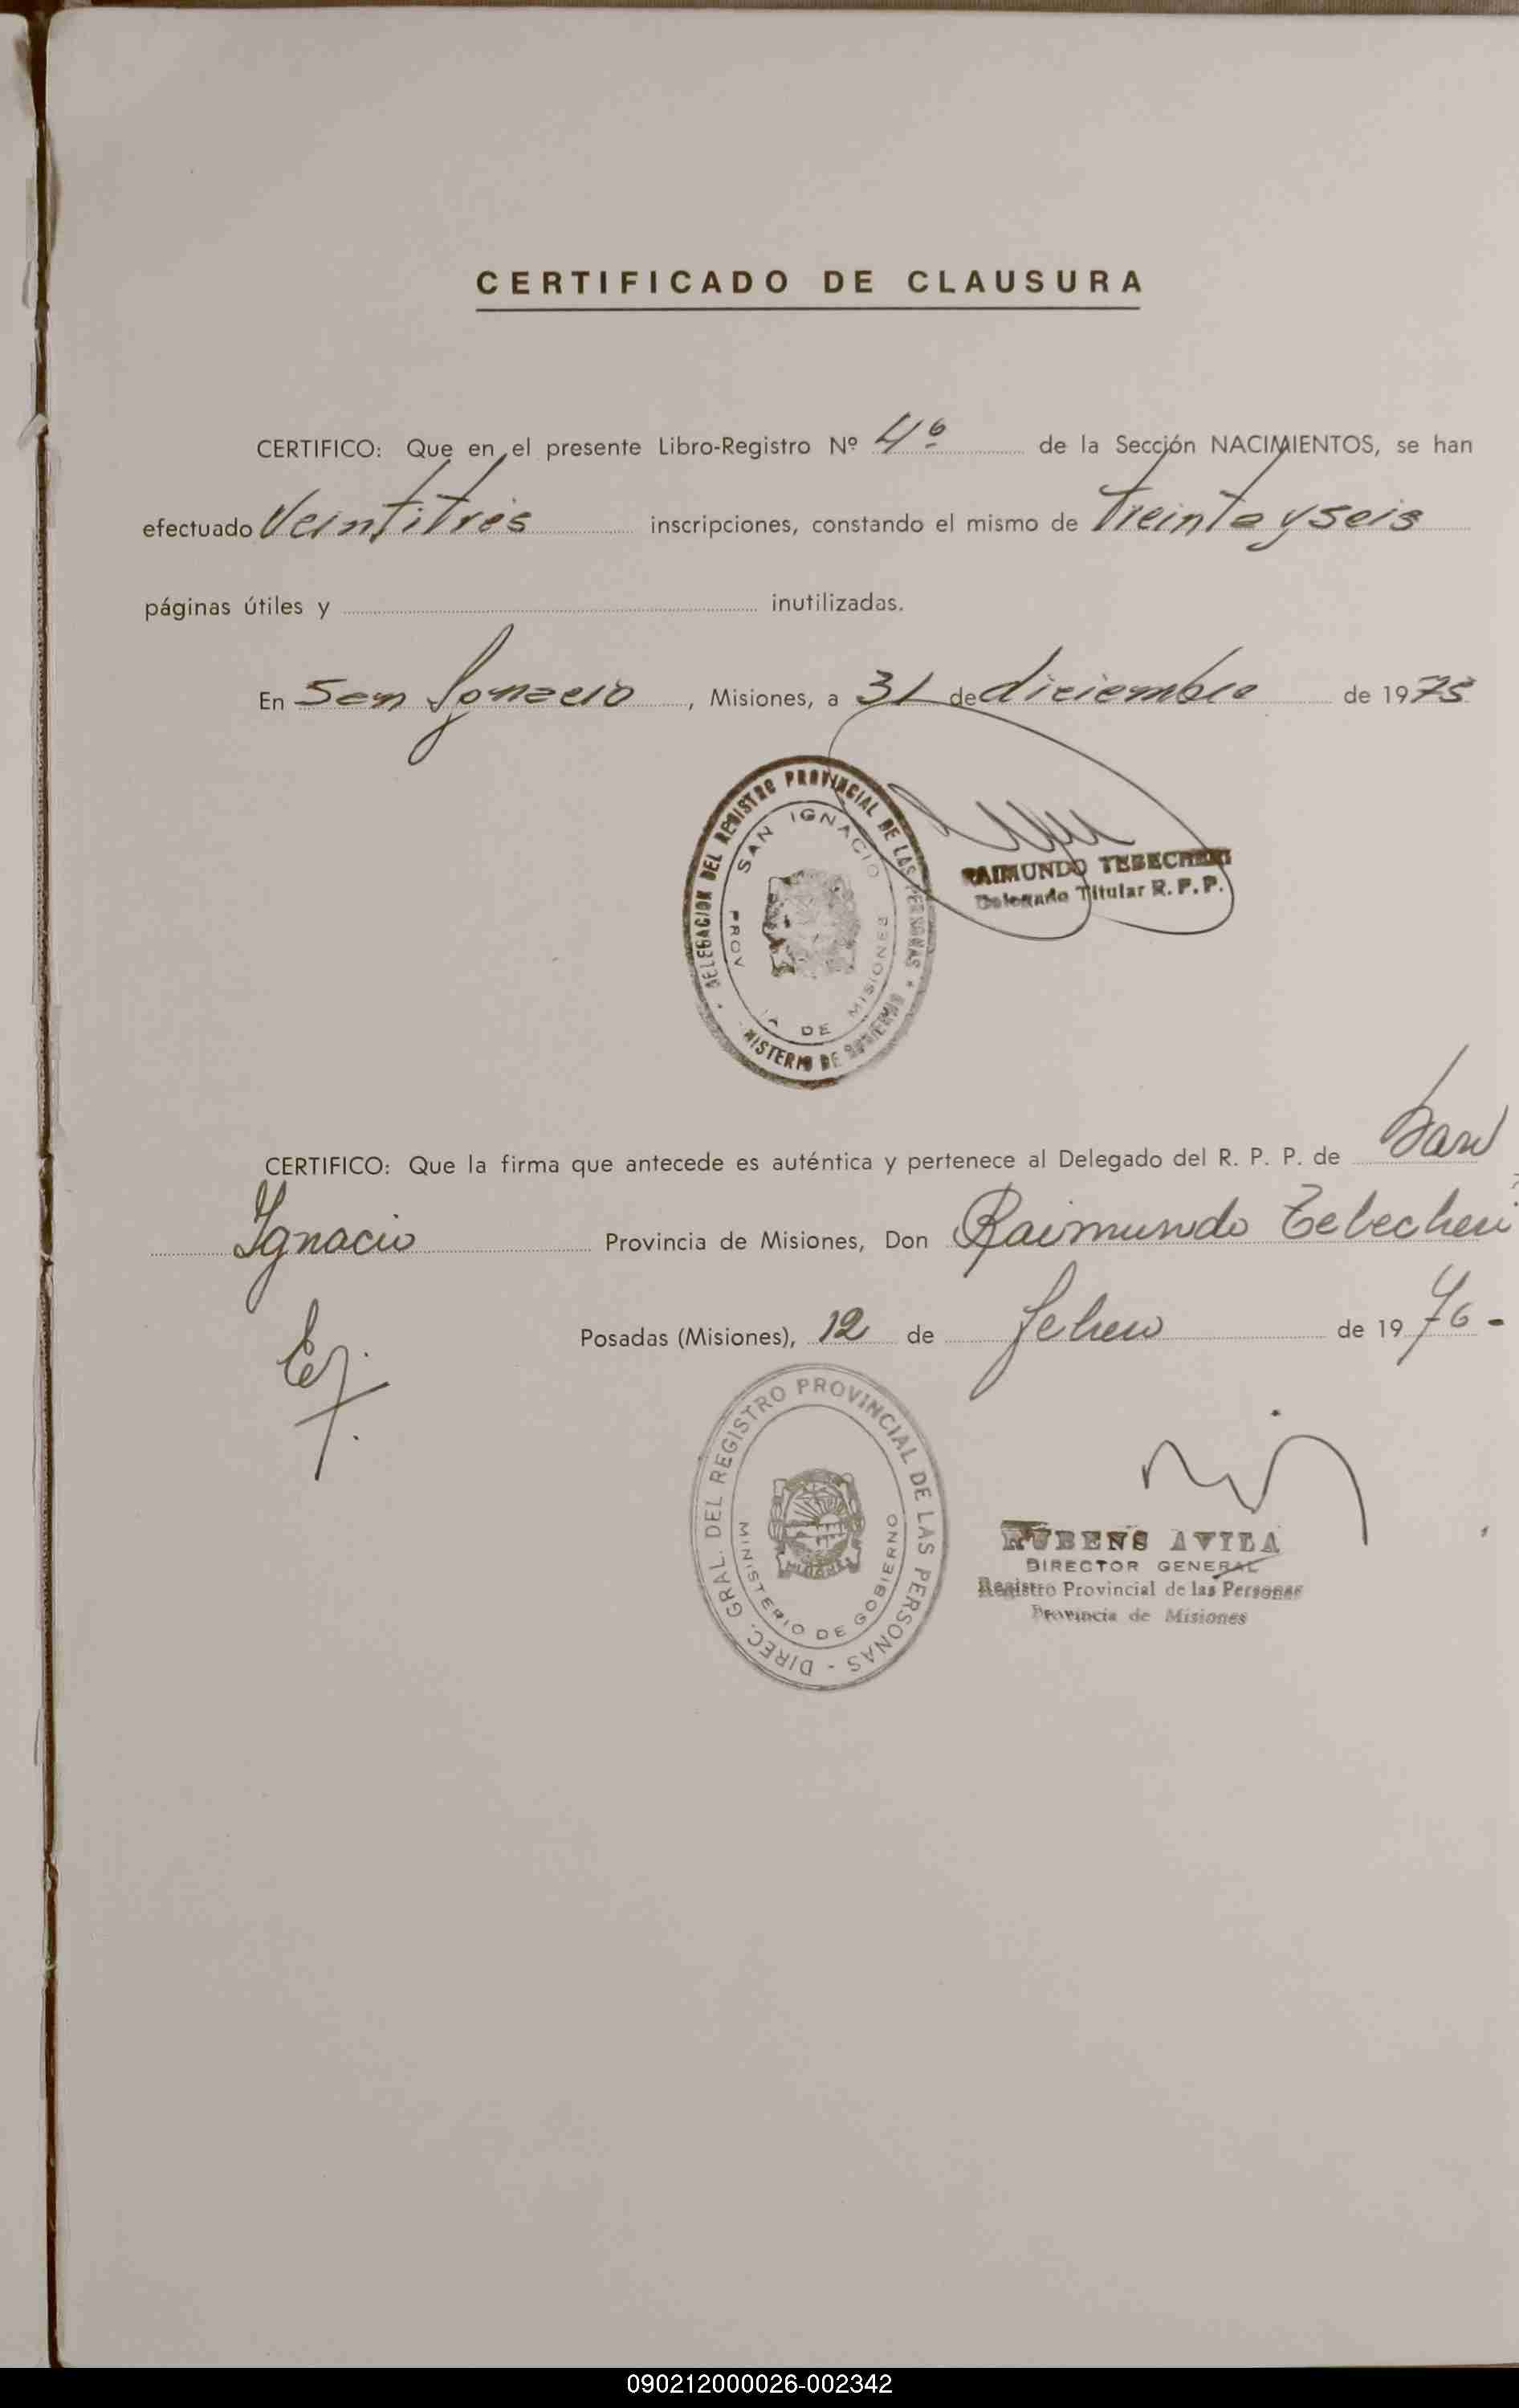 CERTIFICADO DE CLAUSURA
CERTIFICO: Que en el presente Libro-Registro Nº 4º de la Sección NACIMIENTOS, se han
efectuado Veintitrés inscripciones, constando el mismo de treinta y seis
páginas útiles y inutilizadas.
En San Ignacio, Misiones, a 31 de diciembre de 1975
DELEGACION DEL REGISTRO PROVINCIAL DE LAS PERSONAS
SAN IGNACIO
DE MISIONES
DE GOBIERNO
RAIMUNDO TEBECHERI
Delegado Titular R. P. P.
CERTIFICO: Que la firma que antecede es auténtica y pertenece al Delegado del R. P. P. de San
Ignacio Provincia de Misiones, Don Raimundo Tebecheri
Posadas (Misiones), 12 de febrero de 1976-
DIREC. GRAL. DEL REGISTRO PROVINCIAL DE LAS PERSONAS -
MINISTERIO DE GOBIERNO
MISIONES
RUBENS AVILA
DIRECTOR GENERAL
Registro Provincial de las Personas
Provincia de Misiones
090212000026-002342